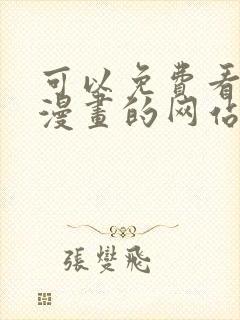 可以免费看
漫畫的网站
張燮飛